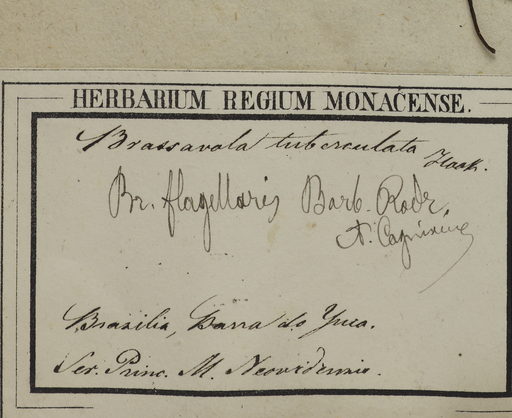 HERBARIUM REGIUM MONACENSE.
Brassavola tuberculata Hook.
Br. flagellaris Barb. Rodr.
A. Cogniaux
Brasilia, Barra do Juca.
Ser. Princ. M. Neovidensis.